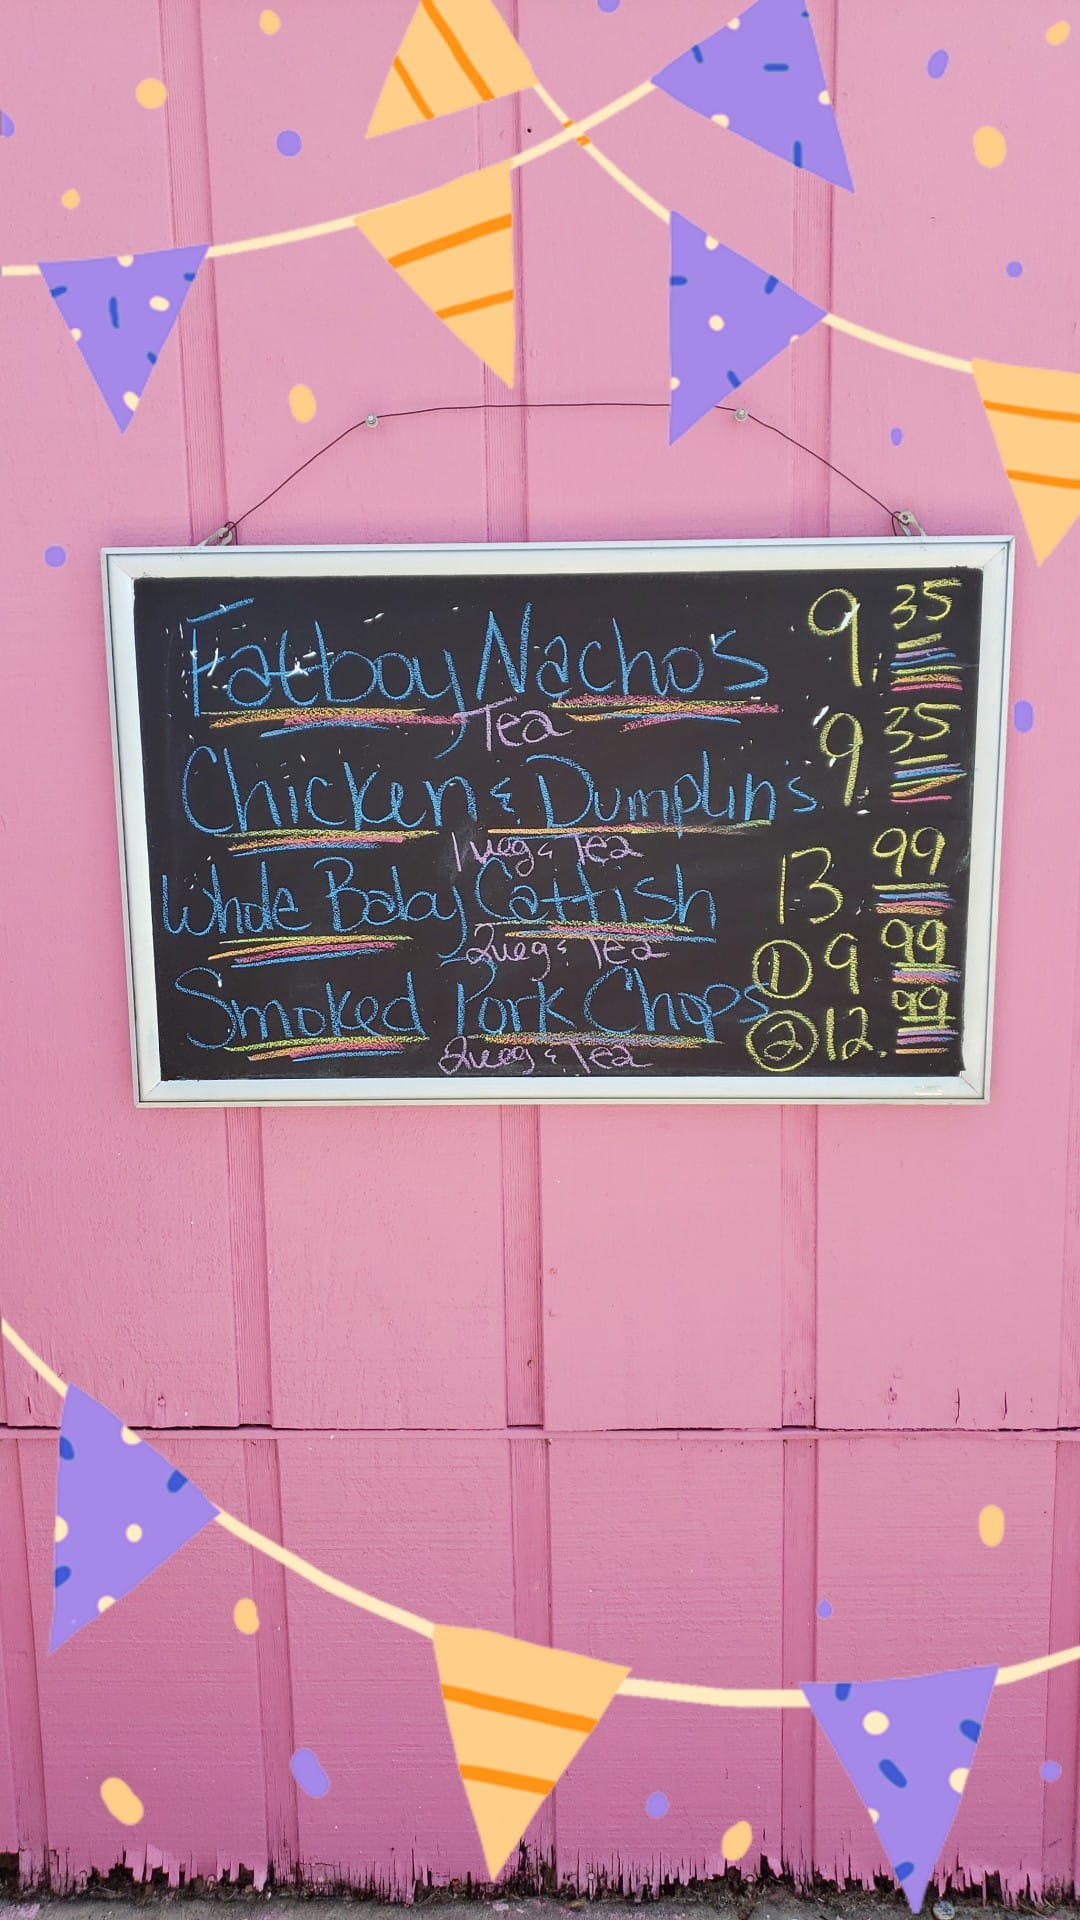 Fatboy Nachos 9.35
Tea
Chicken & Dumplins 9.35
1 veg & Tea
Whole Baby Catfish 13 99
2 veg & Tea
Smoked Pork Chops ① 9 99
② 12.99
2 veg & Tea